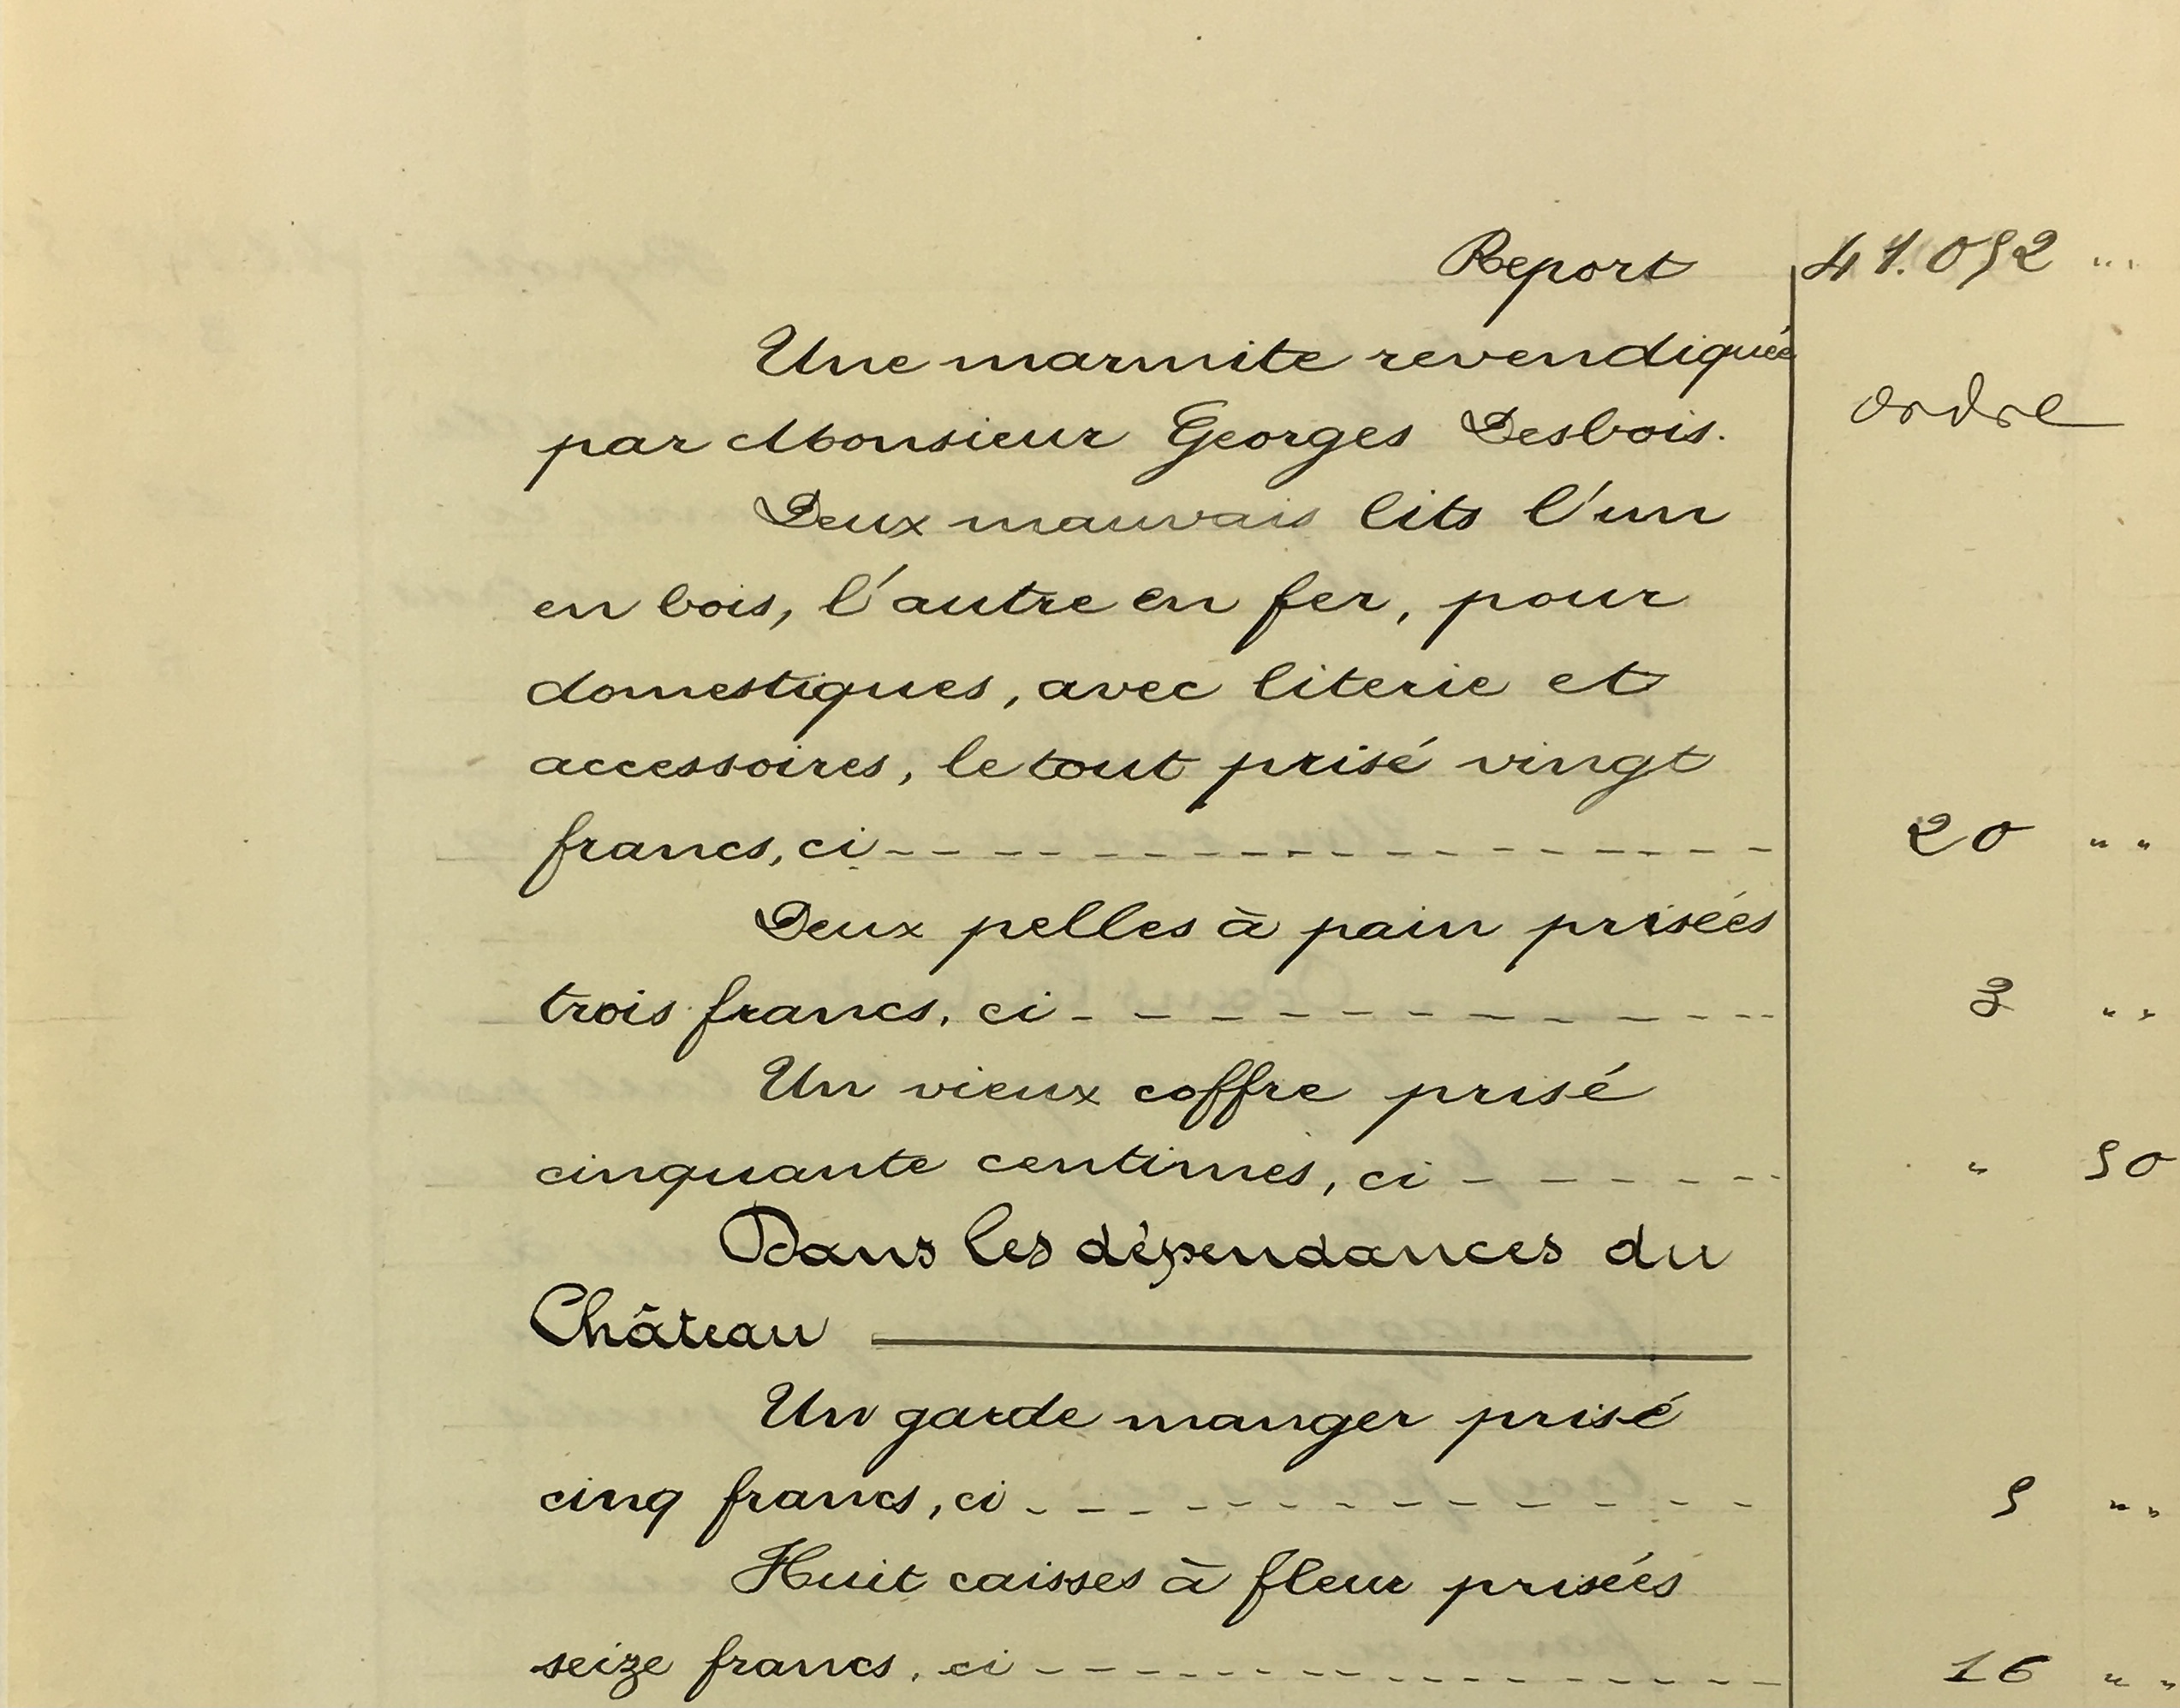 Report 41.052 " "
Une marmite revendiquée
par Monsieur Georges Desbois. ordre
Deux mauvais lits l'un
en bois, l'autre en fer, pour
domestiques, avec literie et
accessoires, le tout prisé vingt
francs, ci - - - - - - - - - - - - - - - - 20 " "
Deux pelles à pain prisées
trois francs, ci - - - - - - - - - - - - - 3 " "
Un vieux coffre prisé
cinquante centimes, ci - - - - - - - " 50
Dans les dépendances du
Château
Un garde manger prisé
cinq francs, ci - - - - - - - - - - - - - 5 " "
Huit caisses à fleur prisées
seize francs, ci - - - - - - - - - - - - - 16 " "